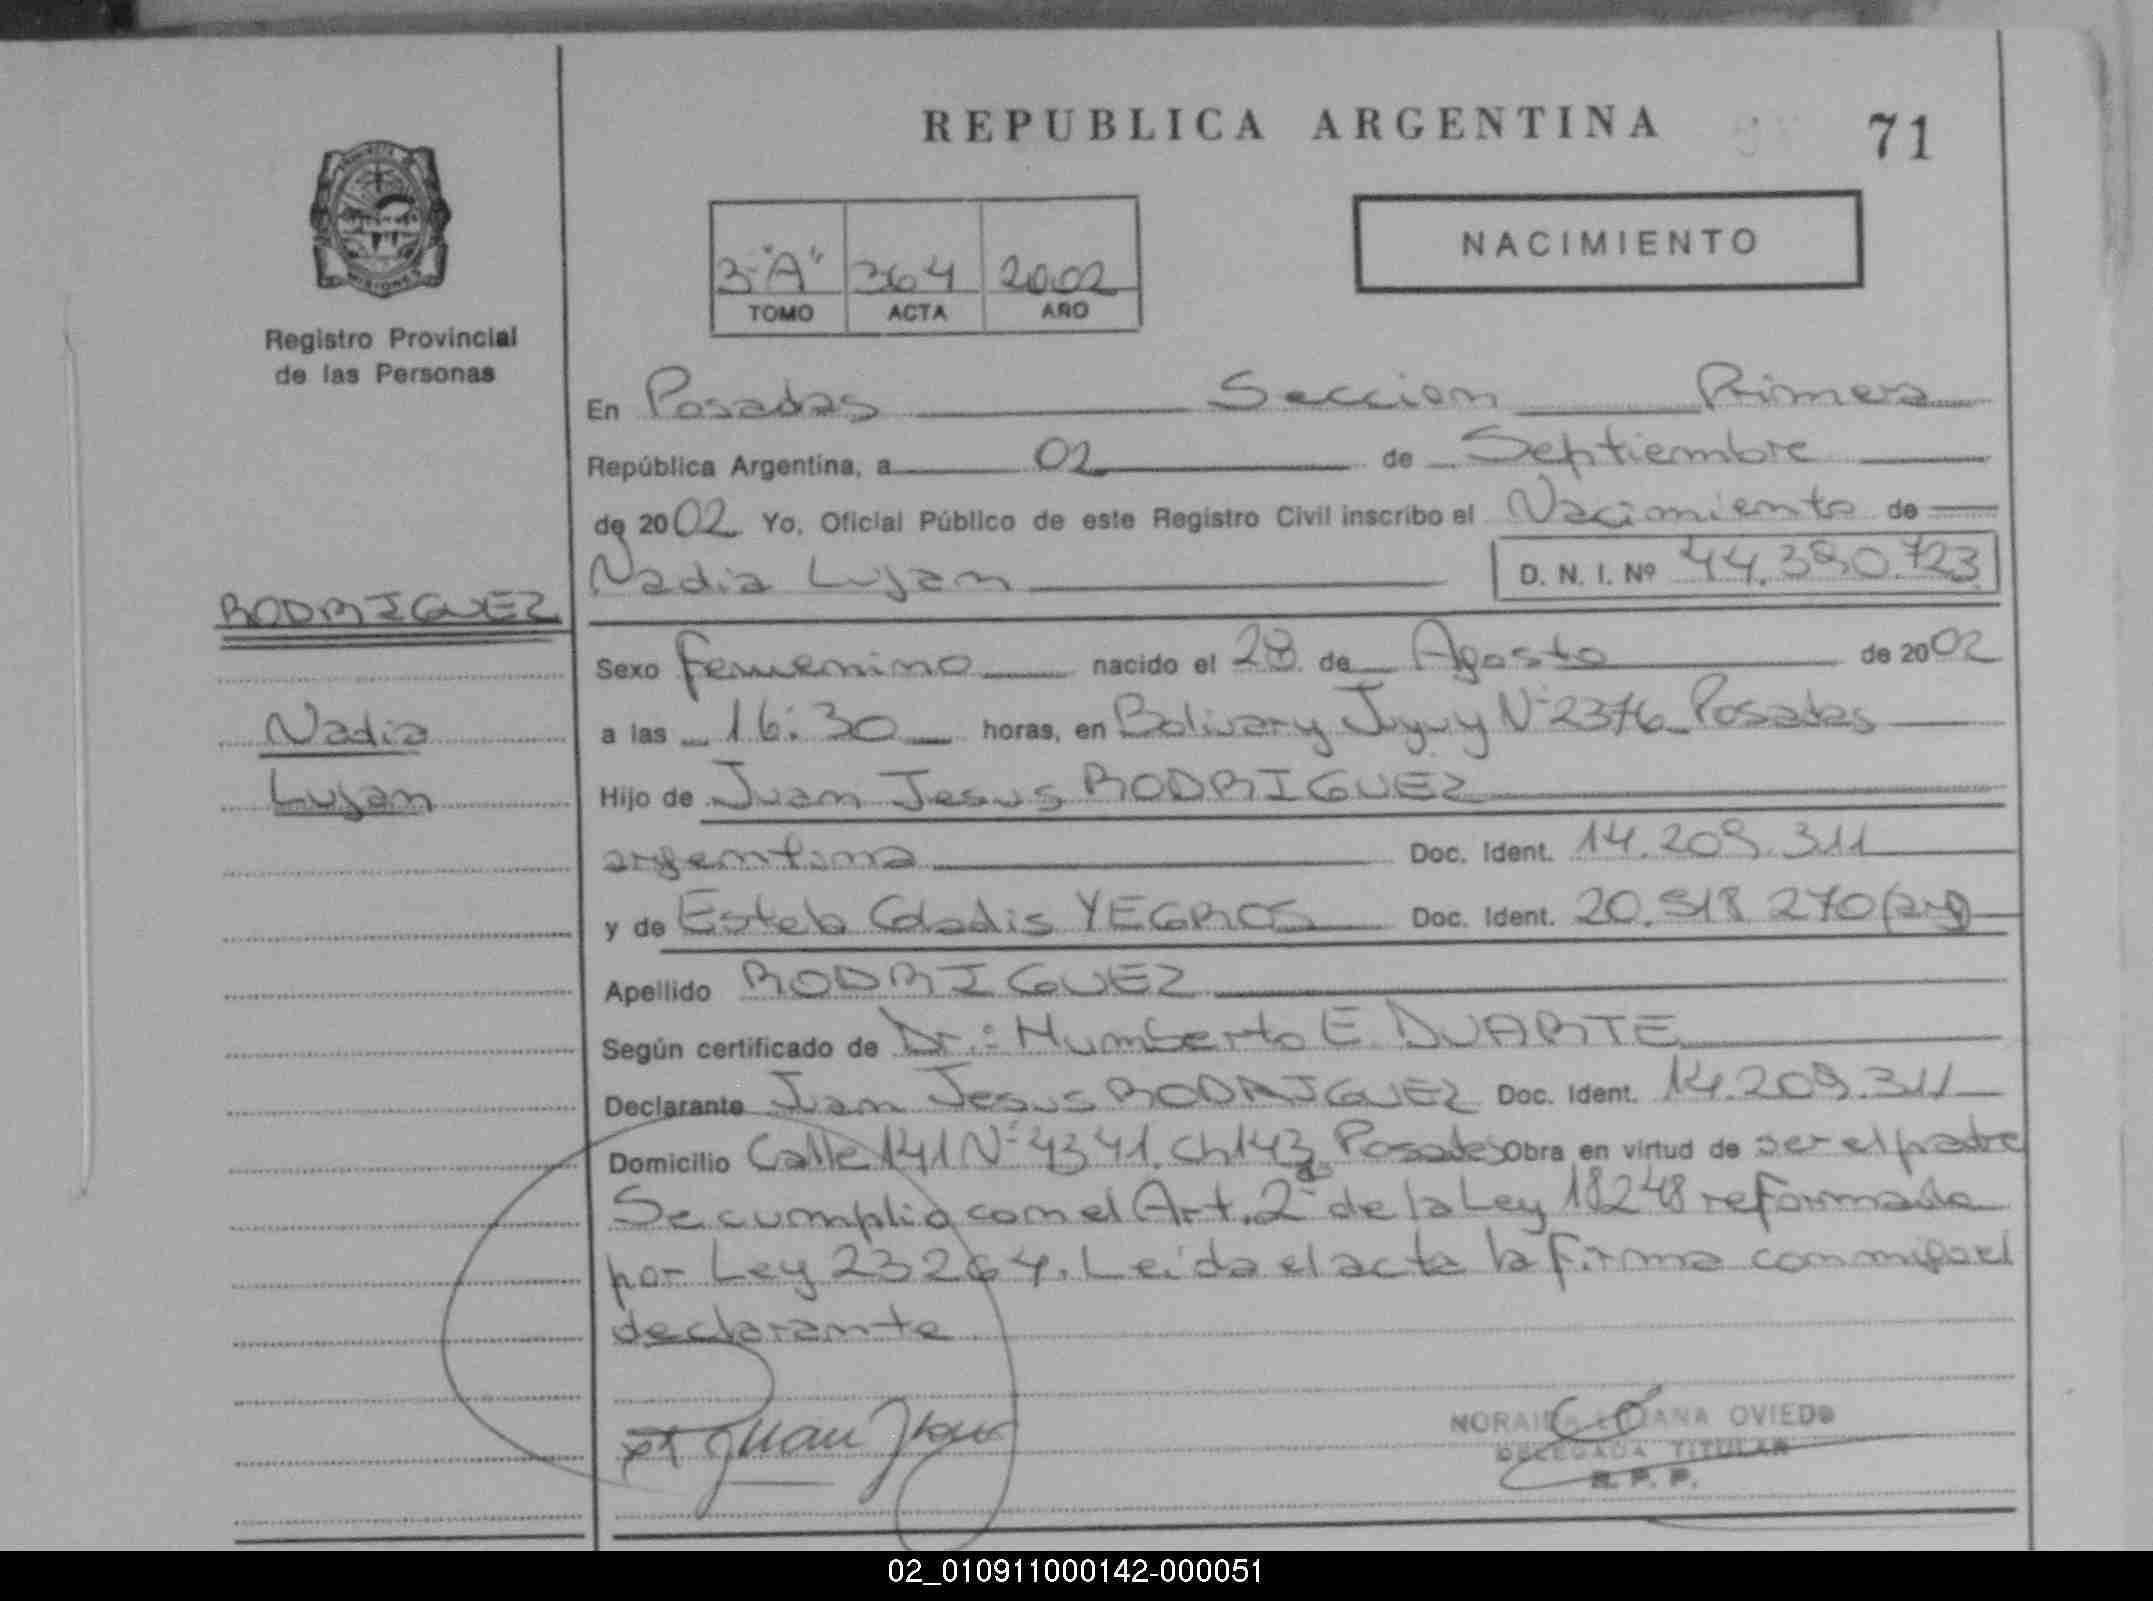 REPUBLICA ARGENTINA
71
3-"A" 364 2002
TOMO ACTA AÑO
NACIMIENTO
PROVINCIA DE
MISIONES
Registro Provincial
de las Personas
RODRIGUEZ
Nadia
Lujan
En Posadas Seccion Primera
República Argentina, a 02 de Septiembre
de 2002 Yo, Oficial Público de este Registro Civil inscribo el Nacimiento de
Nadia Lujan D. N. I. Nº 44.390.723
Sexo femenino nacido el 28 de Agosto de 2002
a las 16:30 horas, en Bolivar y Jujuy Nº 2376 Posadas
Hijo de Juan Jesus RODRIGUEZ
argentina Doc. Ident. 14.209.311
y de Estela Gladis YEGROS Doc. Ident. 20.518.270 (arg)
Apellido RODRIGUEZ
Según certificado de Dr.: Humberto E. DUARTE
Declarante Juan Jesus RODRIGUEZ Doc. Ident. 14.209.311
Domicilio Calle 141 Nº 4341. Ch 143 Posadas Obra en virtud de ser el padre
Se cumplio con el Art. 2º de la Ley 18248 reformada
por Ley 23264. Leida el acta la firma conmigo el
declarante
Juan
NORAIDA LILIANA OVIEDO
DELEGADA TITULAR
R. P. P.
02_010911000142-000051